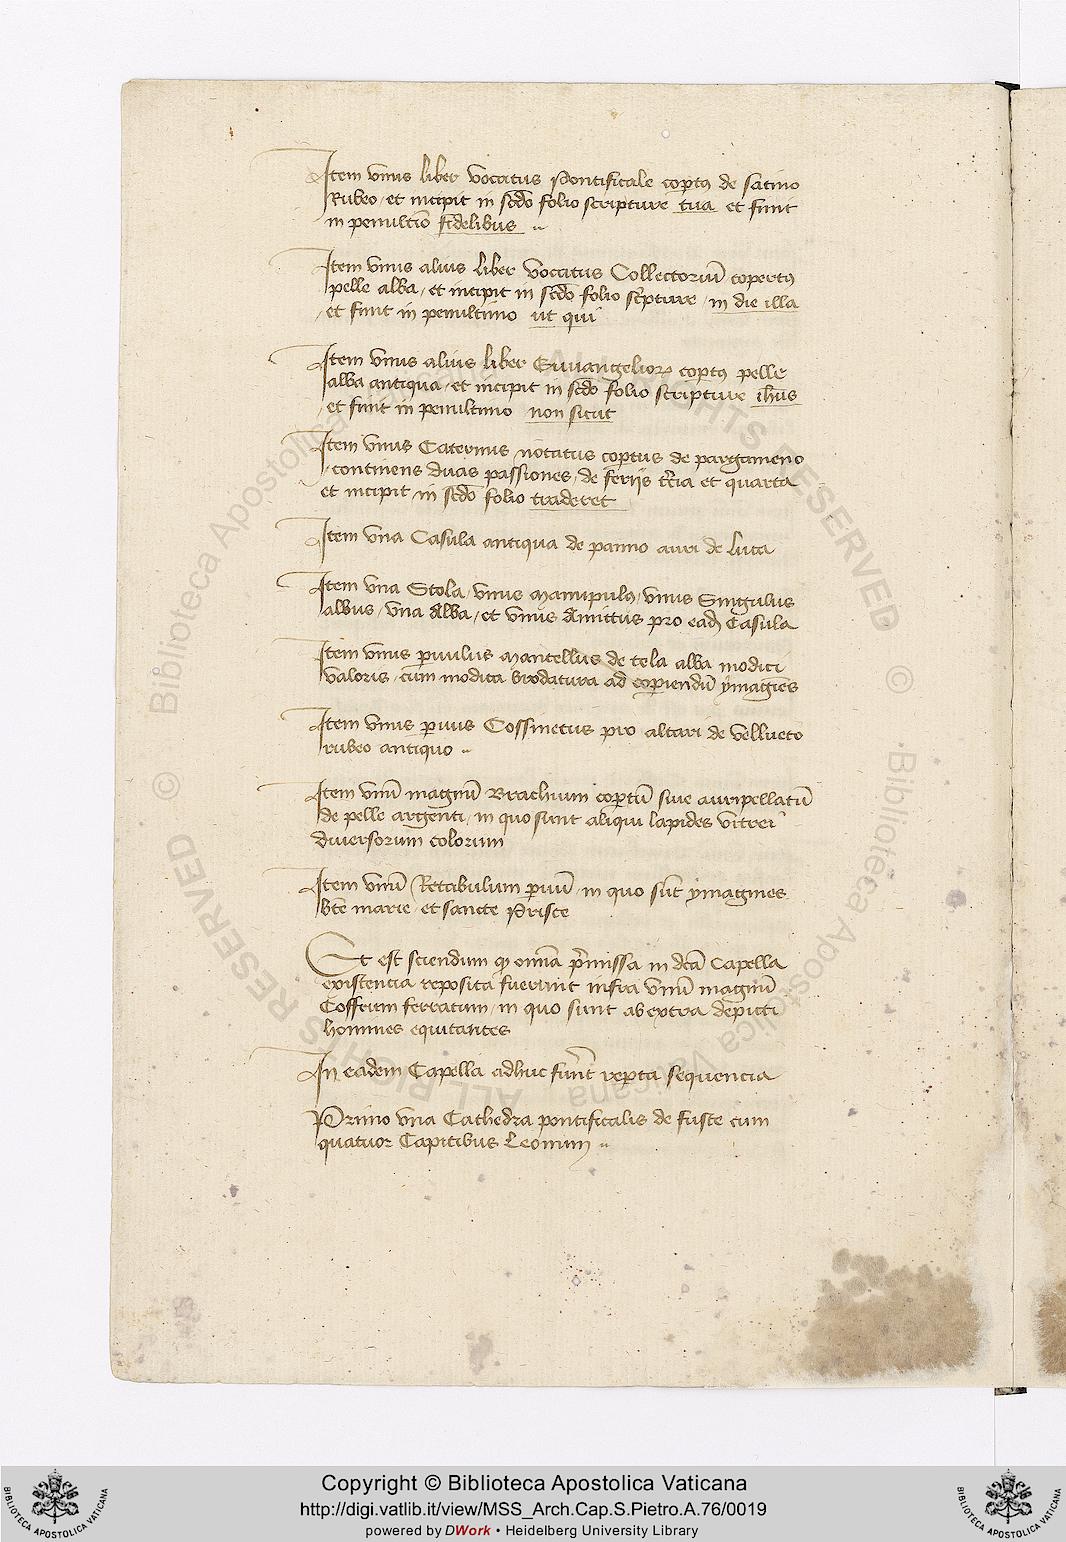 Item vnus liber vocatus Pontificale coptus de satino
Rubeo et incipit in scdo folio scripture tua et finit
in penultio fidelibus
Item vnus alius liber vocatus Collectoriu copertus
pelle alba et incipit in scdo folio scripture in die illa
et finit in penultimo ut qui
Item vnus alius liber Euuangelior coptus pelle
alba antiqua et incipit in scdo folio scripture ihus
et finit in penultimo non sicut
Item vnus Caternus notatus coptus de pargameno
continens duas passiones de feriis tcia et quarta
et incipit in scdo folio traderet
Item vna Casula antiqua de panno auri de luca
Item vna Stola vnus manipulus vnus Singulus
albus vna Alba et vnus Amittus pro ead Casula
Item vnus puulus mantellus de tela alba modici
valoris cum modica brodatura ad copiendu ymagies
Item vnus puus Cossinetus pro altari de vellueto
rubeo antiquo
Item vnu magnu Brachium coptu siue auripellatu
de pelle argenti in quo sunt aliqui lapides vitrei
diuersorum colorum
Item vnu Retabulum puu in quo sut ymagines
bte marie et sancte Prisce
Et est sciendum q omnia pmissa in dca Capella
existencia reposita fuerunt infra vnu magnu
Coffrum ferratum in quo sunt ab extra depicti
homines equitantes
In eadem Capella adhuc funt repta sequencia
Primo vna Cathedra pontificalis de fuste cum
quatuor Capitibus Leonum
© Biblioteca Apostolica Vaticana ALL RIGHTS RESERVED
© Biblioteca Apostolica Vaticana ALL RIGHTS RESERVED
BIBLIOTECA APOSTOLICA VATICANA
Copyright © Biblioteca Apostolica Vaticana
http://digi.vatlib.it/view/MSS_Arch.Cap.S.Pietro.A.76/0019
powered by DWork • Heidelberg University Library
BIBLIOTECA APOSTOLICA VATICANA